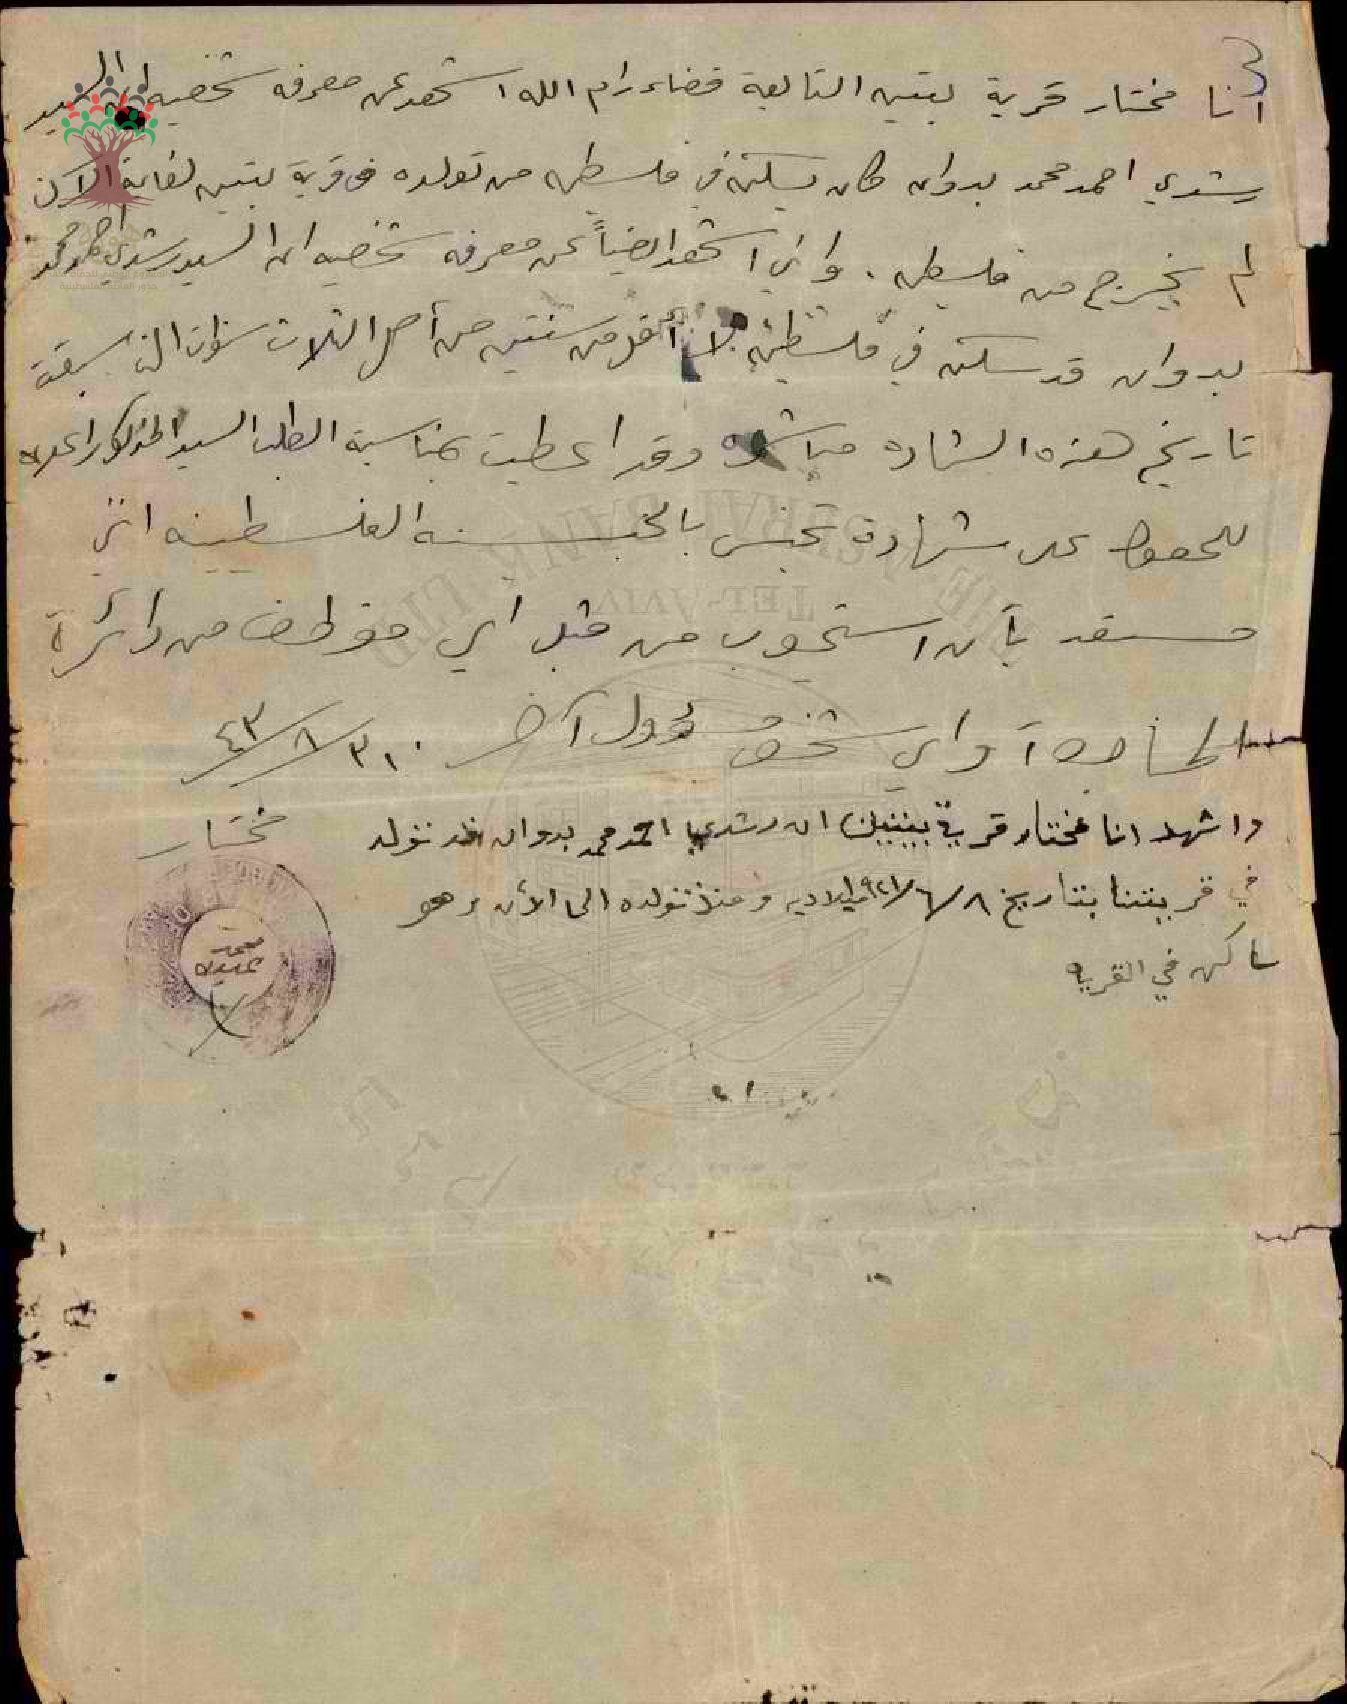 انا مختار قرية بيتين التابعة قضاء رام الله اشهد عن معرفه شخصيه ان السيد
رشدي احمد محمد بدوان كان يسكن في فلسطين من تولده في قرية بيتين لغاية الآن
لم يخرج من فلسطين . واني اشهد ايضاً عن معرفه شخصيه ان السيد رشدي احمد محمد
بدوان قد سكن في فلسطين لا أقل من سنتين من أصل الثلاث سنوات التي سبقت
تاريخ هذه الشهاده مباشرة وقد اعطيت بمناسبة الطلب السيد المذكور اعلاه
للحصول على شهادة تجنس بالجنسيه الفلسطينيه انني
مستعد بأن استجوب من قبل اي موظف من دائرة
المهاجره او اي شخص مسؤول آخر . ٣١/٨/٤٣
مختار
واشهد انا مختار قرية بيتين ان رشدي احمد محمد بدوان قد تولد
في قريتنا بتاريخ ٨/٦/٩٢١ ميلاديه ومنذ تولده الى الأن وهو
ساكن في القريه
THE SERVI BANK LTD
TEL-AVIV